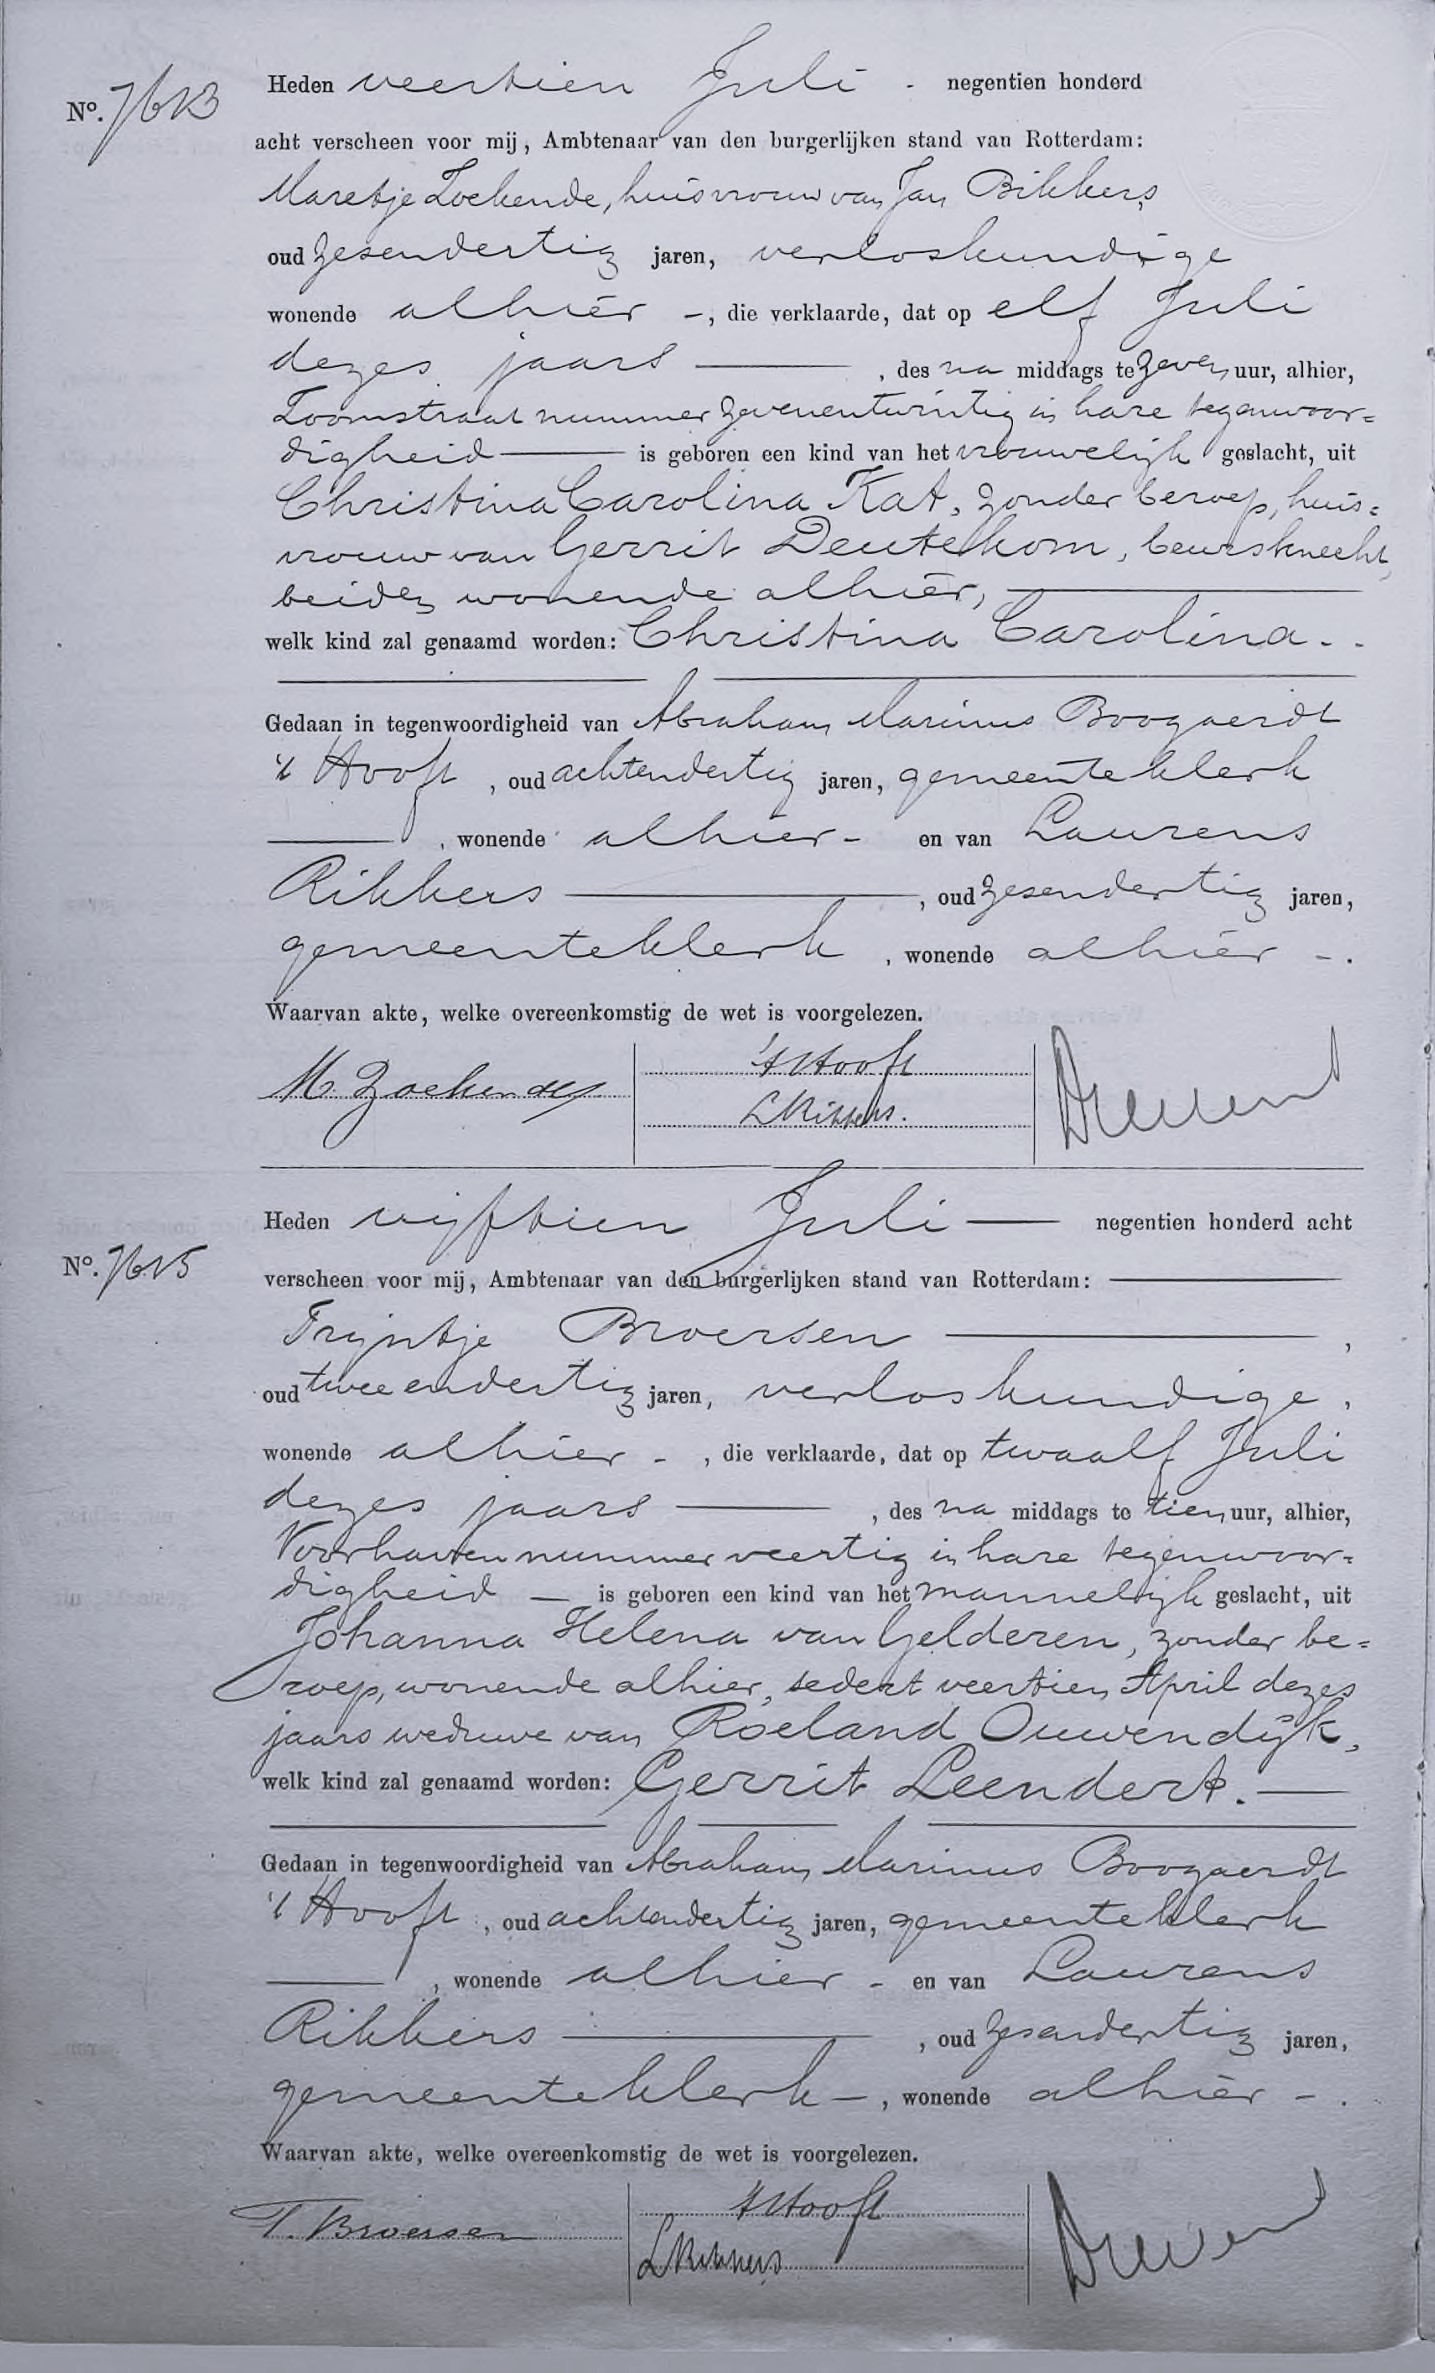 Nº. 7613
Heden veertien Juli - negentien honderd
acht verscheen voor mij, Ambtenaar van den burgerlijken stand van Rotterdam:
Maretje Zoekende, huisvrouw van Jan Bikkers,
oud zesendertig jaren, verloskundige
wonende alhier -, die verklaarde, dat op elf Juli
dezes jaars —, des na middags te zeven uur, alhier,
Toomstraat nummer zevenentwintig in hare tegenwoor=
digheid — is geboren een kind van het vrouwelijk geslacht, uit
Christina Carolina Kat, zonder beroep, huis=
vrouw van Gerrit Deutekom, beursknecht,
beiden wonende alhier, —
welk kind zal genaamd worden: Christina Carolina. -
Gedaan in tegenwoordigheid van Abraham Marinus Boogaerdt
't Hooft, oud achtendertig jaren, gemeenteklerk
—, wonende alhier - en van Laurens
Rikkers —, oud zesendertig jaren,
gemeenteklerk, wonende alhier -.
Waarvan akte, welke overeenkomstig de wet is voorgelezen.
M. Zoekende
't Hooft
L Rikkers.
Heden vijftien Juli — negentien honderd acht
Nº. 7615
verscheen voor mij, Ambtenaar van den burgerlijken stand van Rotterdam: —
Trijntje Broersen —,
oud twee endertig jaren, verloskundige,
wonende alhier -, die verklaarde, dat op twaalf Juli
dezes jaars —, des na middags te tien uur, alhier,
Voorhaven nummer veertig in hare tegenwoor=
digheid — is geboren een kind van het mannelijk geslacht, uit
Johanna Helena van Gelderen, zonder be=
roep, wonende alhier, sedert veertien April dezes
jaars weduwe van Roeland Ouwendijk,
welk kind zal genaamd worden: Gerrit Leendert. —
Gedaan in tegenwoordigheid van Abraham Marinus Boogaerdt
't Hooft, oud achtendertig jaren, gemeenteklerk
—, wonende alhier - en van Laurens
Rikkers —, oud zesendertig jaren,
gemeenteklerk —, wonende alhier -.
Waarvan akte, welke overeenkomstig de wet is voorgelezen.
T. Broersen
't Hooft
L Rikkers